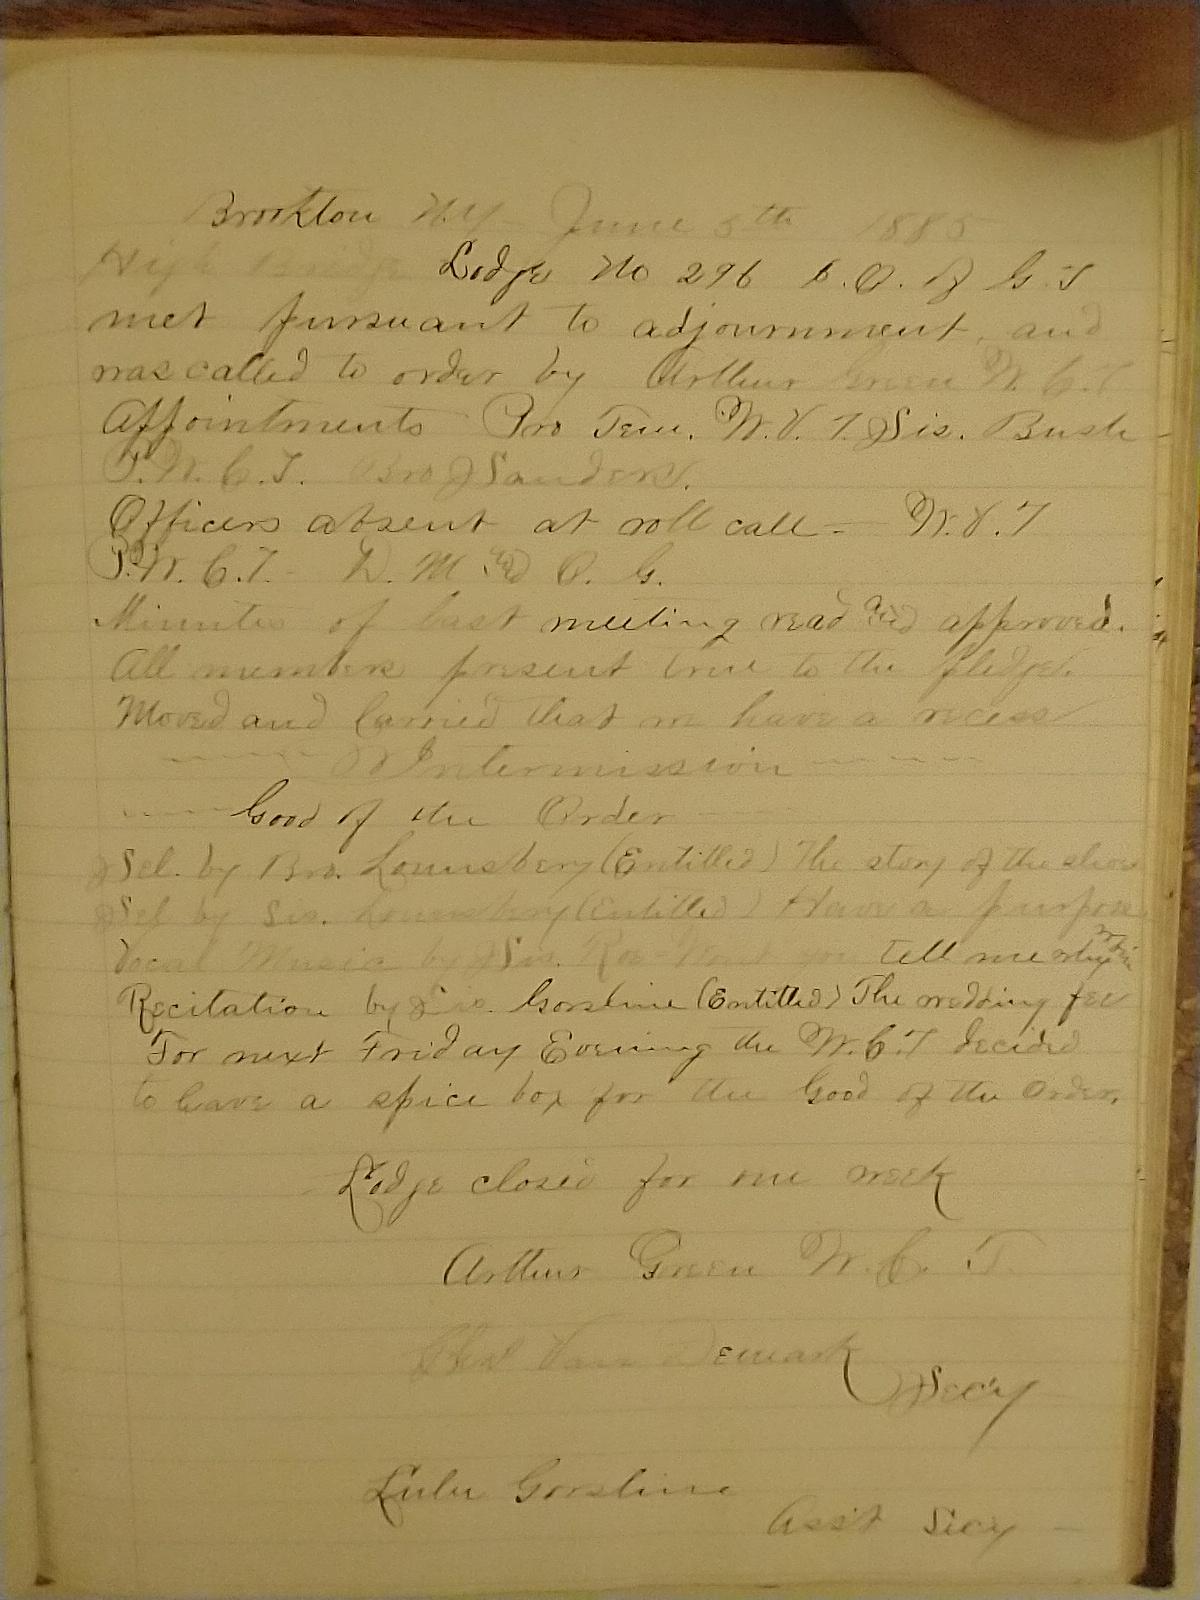 Brookton N.Y. June 5th 1885
High Bridge Lodge No 296 I.O. of G.T
met pursuant to adjournment, and
was called to order by Arthur Green W.C.T
Appointments Pro Tem. W.V.T. Sis. Bush
P.W.C.T. Bro Sanders.
Officers absent at roll call - W.V.T
P.W.C.T. - D.M. and O.G.
Minutes of last meeting read and approved.
All members present true to the pledge.
Moved and Carried that we have a recess
Intermission
Good of the Order
Sel. by Bro. Lounsbery (Entitled) The story of the
Sel by Sis. Lounsbery (Entitled) Have a purpose
Vocal Music by Sis. Roe - Wont you tell me why
Recitation by Sis. Gorsline (Entitled) The wedding fee
For next Friday Evening the W.C.T decided
to have a spice box for the Good of the Order.
Lodge closed for one week
Arthur Green W.C.T.
Van Demark
Secy
Lulu Gorsline
Ass't Secy -